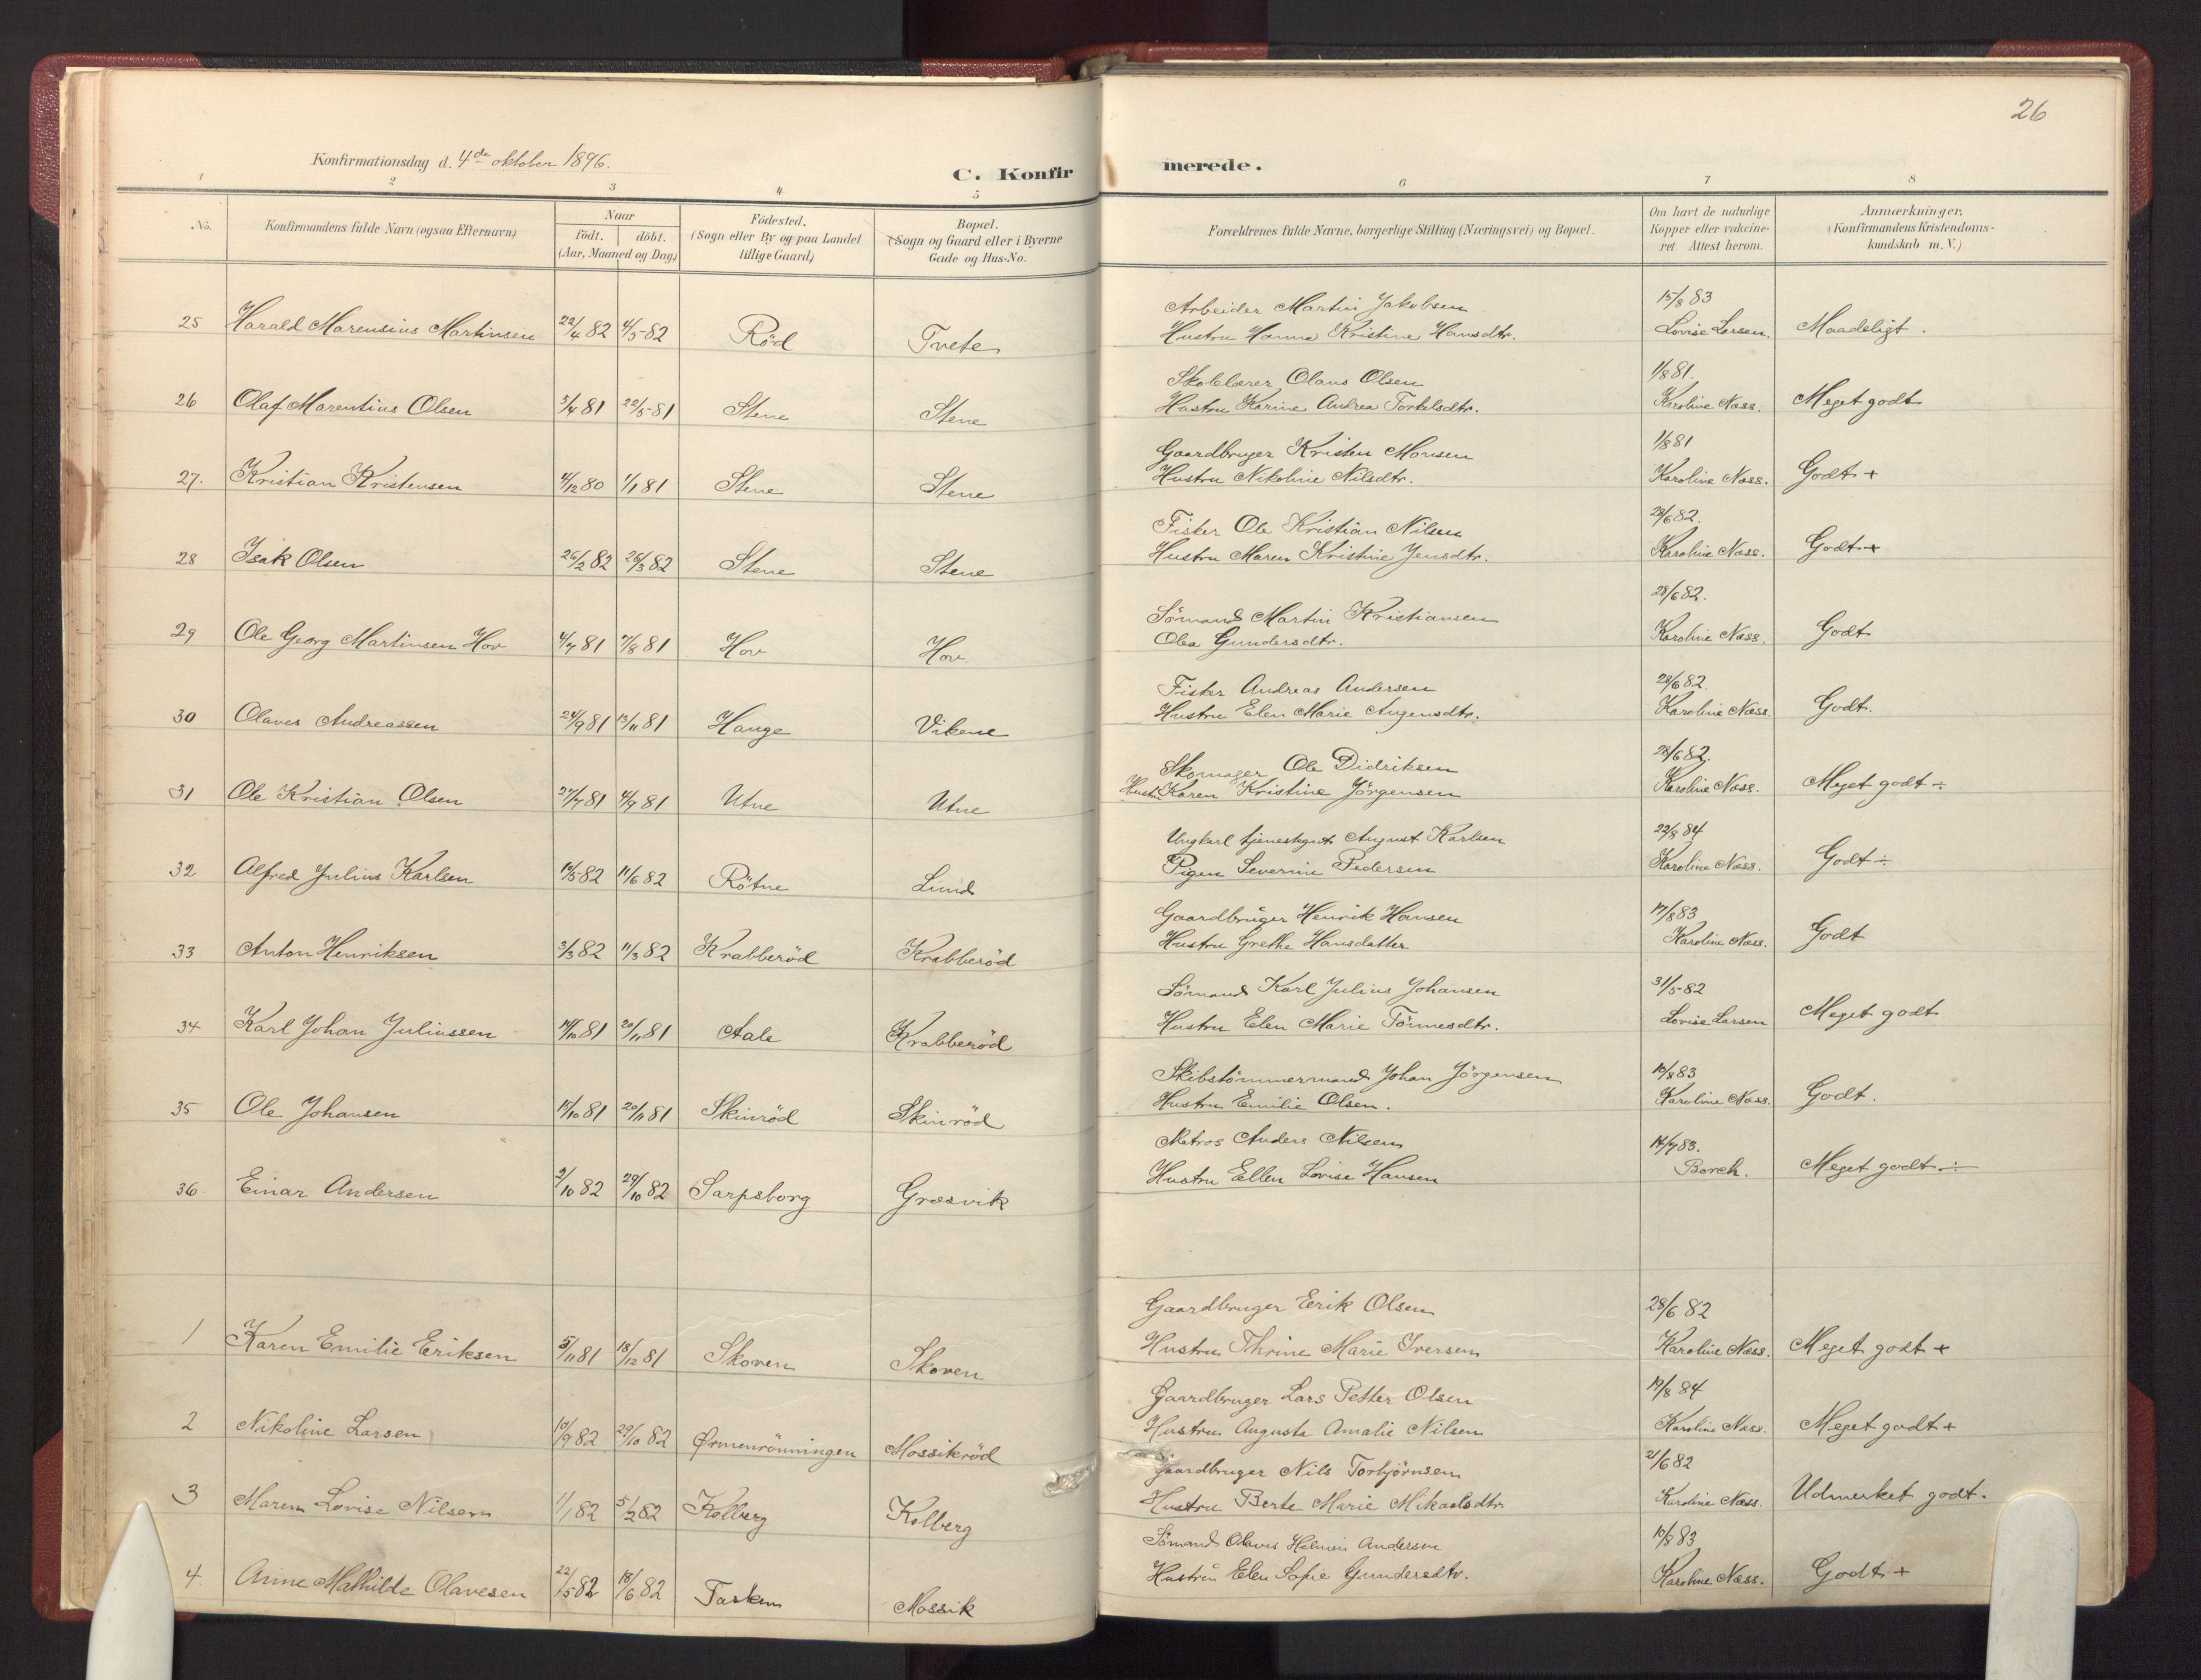 26
Konfirmationsdag d. 4de oktober 1896.
C. Konfirmerede.
1 2 3 4 5 6 7 8
No.
Konfirmandens fulde Navn (ogsaa Efternavn)
Naar
födt. döbt.
(Aar, Maaned og Dag)
Födested.
(Sogn eller By og paa Landet
tillige Gaard)
Bopæl.
(Sogn og Gaard eller i Byerne
Gade og Hus-No.
Forældrenes fulde Navne, borgerlige Stilling (Næringsvei) og Bopæl.
Om havt de naturlige
Kopper eller vakcine-
ret. Attest herom.
Anmærkninger.
(Konfirmandens Kristendoms-
kundskab m. V.)
Arbeider Martin Jakobsen 15/8 83
25 Harald Marensius Martinsen 22/4 82 4/5-82 Röd Tvete Hustru Hanna Kristine Hansdtr. Lovise Larsen. Maadeligt.
Skolelærer Olaus Olsen 1/8 81.
26 Olaf Marentius Olsen 5/4 81 22/5-81 Stene Stene Hustru Karine Andrea Torkelsdtr. Karoline Næss. Meget godt
Gaardbruger Kristen Monsen 1/8 81
27. Kristian Kristensen 4/12 80 1/1 81 Stene Stene Hustru Nikoline Nilsdtr. Karoline Næss. Godt +
Fisker Ole Kristian Nilsen 28/6 82.
28 Isak Olsen 26/2 82 26/3 82 Stene Stene Hustru Maren Kristine Jensdtr. Karoline Næss. Godt +
Sömand Martin Kristiansen 28/6 82.
29 Ole Georg Martinsen Hov 4/7 81 7/8 81 Hov Hov Olea Gundersdtr. Karoline Næss. Godt
Fisker Andreas Andersen 28/6 82.
30 Olaves Andreassen 24/9 81 13/11 81 Hauge Vikene Hustru Elen Marie Augensdtr. Karoline Næss. Godt.
Skomager Ole Didriksen 28/6 82.
31 Ole Kristian Olsen 27/7 81 4/9 81 Utne Utne Hustru Karen Kristine Jörgensen Karoline Næss. Meget godt ÷
Ungkarl tjenestegut August Karlsen 22/8 84
32 Alfred Julius Karlsen 14/5-82 11/6 82 Rötne Lund Pigen Severine Pedersen Karoline Næss. Godt ÷
Gaardbruger Henrik Hansen 17/8 83
33 Anton Henriksen 3/3 82 11/3 82 Krabberöd Krabberöd Hustru Grethe Hansdatter Karoline Næss. Godt
Sömand Karl Julius Johansen 31/5-82
34 Karl Johan Juliussen 14/10 81 20/11 81 Aale Krabberöd Hustru Elen Marie Tönnesdtr. Lovise Larsen Meget godt
Skibstömmermand Johan Jörgensen 10/8 83
35 Ole Johansen 15/10 81 20/11 81 Skinröd Skinröd Hustru Emilie Olsen. Karoline Næss. Godt.
Matros Anders Nilsen 14/7 83.
36. Einar Andersen 2/10 82 29/10 82 Sarpsborg Græsvik Hustru Ellen Lovise Hansen Borch. Meget godt ÷
Gaardbruger Erik Olsen 28/6 82
1 Karen Emilie Eriksen 5/11 81 18/12 81 Skoven Skoven Hustru Thrine Marie Iversen Karoline Næss. Meget godt +
Gaardbruger Lars Petter Olsen 19/8 84
2 Nikoline Larsen 10/9 82 29/10 82 Ørmenrönningen Mossikröd Hustru Augusta Amalie Nilsen Karoline Næss. Meget godt +
Gaardbruger Nils Torbjörnsen 21/6 82
3 Maren Lovise Nilsen 1/1 82 5/2 82 Kolberg Kolberg Hustru Berte Marie Mikaelsdtr. Karoline Næss. Udmerket godt.
Sömand Olaves Helmin Andersen 10/8 83
4. Anne Mathilde Olavesen 22/5 82 18/6 82 Tasken Mossik Hustru Elen Sofie Gundersdtr. Karoline Næss. Godt +